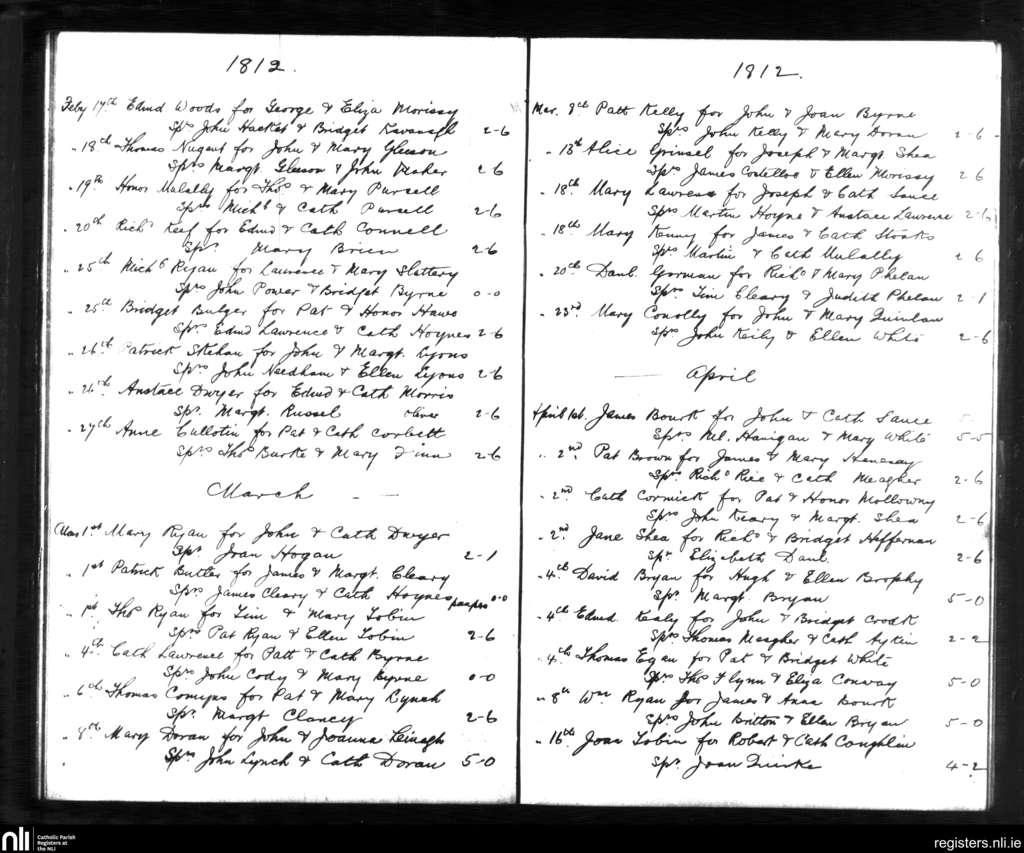 1812.
Feby 17th Edmd Woods for George & Eliza Morissy
Sprs John Hacket & Bridget Kavanagh 2-6
" 18th Thomas Nugent for John & Mary Gleeson
Sprs Margt. Gleeson & John Maher 2 6
" 19th Honor Mulally for Thos & Mary Purcell
Sprs Michl & Cath Purcell 2-6
" 20th Richd Keef for Edmd & Cath Connell
Spr. Mary Brien 2-6
" 25th Michl Ryan for Laurence & Mary Slattery
Sprs John Power & Bridget Byrne 0-0
" 25th Bridget Bulger for Pat & Honor Hawe
Sprs Edmd Lawrence & Cath Hoynes 2-6
" 26th Patrick Skehan for John & Margt. Lyons
Sprs John Needham & Ellen Lyons 2-6
" 26th Anstace Dwyer for Edmd & Cath Morris
Spr. Margt. Russel 2-6
" 27th Anne Cullotin for Pat & Cath Corbett
Sprs Thos Burke & Mary Finn 2-6
March
Mar 1st Mary Ryan for John & Cath Dwyer
Spr. Joan Hogan 2-1
" 1st Patrick Butler for James & Margt. Cleary
Sprs James Cleary & Cath Hoynes 0-0
" 1st Thos Ryan for Tim & Mary Tobin
Sprs Pat Ryan & Ellen Tobin 2-6
" 4th Cath Lawrence for Patt & Cath Byrne
Sprs John Cody & Mary Byrne 0-0
" 6th Thomas Comyns for Pat & Mary Lynch
Spr. Margt Clancy 2-6
" 8th Mary Doran for John & Joanna Leinagh
Sprs John Lynch & Cath Doran 5-0
1812.
Mar. 8th Patt Kelly for John & Joan Byrne
Sprs John Kelly & Mary Doran 2-6
" 13th Alice Grinsel for Joseph & Margt. Shea
Sprs James Costelloe & Ellen Morissy 2 6
" 18th Mary Lawress for Joseph & Cath Sauce
Sprs Martin Hoyne & Anstace Lawrence 2-6
" 18th Mary Kenny for James & Cath Stoaks
Sprs Martin & Cath Mulally 2 6
" 20th Danl. Gorman for Richd & Mary Phelan
Sprs Tim Cleary & Judith Phelan 2-1
" 23rd Mary Conolly for John & Mary Quinlan
Sprs John Keily & Ellen White 2-6
April
April 1st. James Bourk for John & Cath Sauce
Sprs Ml. Hanigan & Mary White 5-5
" 2nd Pat Brown for James & Mary Henesay
Sprs Richd Rice & Cath Meagher 2-6
" 2nd Cath Cormick for Pat & Honor Mollowny
Sprs John Keary & Margt. Shea 2-6
" 2nd Jane Shea for Richd & Bridget Heffernan
Spr Elizabeth Daul 2-6
" 4th David Bryan for Hugh & Ellen Brophy
Spr. Margt. Bryan 5-0
" 4th Edmd. Kealy for John & Bridget Crook
Sprs Thomas Meagher & Cath Aykin 2-2
" 4th Thomas Egan for Pat & Bridget White
Sprs Thos Flynn & Eliza Conway 5-0
" 8th Wm Ryan for James & Anna Bourk
Sprs John Britton & Ellen Bryan 5-0
" 16th Joan Tobin for Robert & Cath Coughlin
Spr. Joan Quirke 4-2
nli
Catholic Parish
Registers at
the NLI
registers.nli.ie